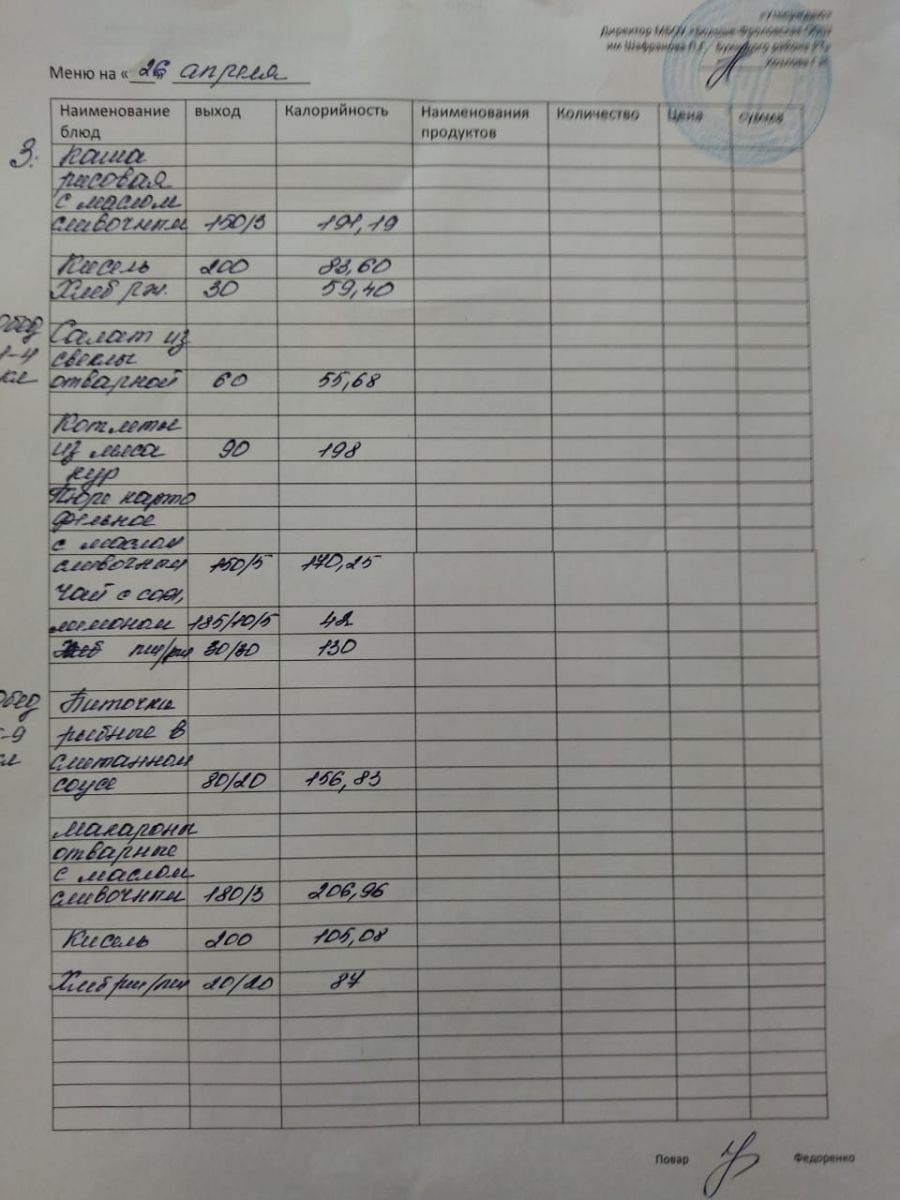 Утверждаю
Директор МБОУ
им Шафранова П.Г.
Меню на « 26 апреля
Наименование блюд выход Калорийность Наименования продуктов Количество Цена сумма
З. Каша
рисовая
с маслом
сливочным 150/3 191,19
Кисель 200 83,60
Хлеб рж. 30 59,40
Обед Салат из
1-4 свеклы
кл отварной 60 55,68
Котлеты
из мяса 90 198
кур
Пюре карто
фельное
с маслом
сливочным 150/5 170,25
Чай с сах,
лимоном 185/10/5 42
30/30 130
Обед Биточки
5-9 рыбные в
кл сметанном
соусе 80/20 156,83
Макароны
отварные
с маслом
сливочным 180/3 206,96
Кисель 200 105,08
Хлеб 20/20 87
Повар Федоренко